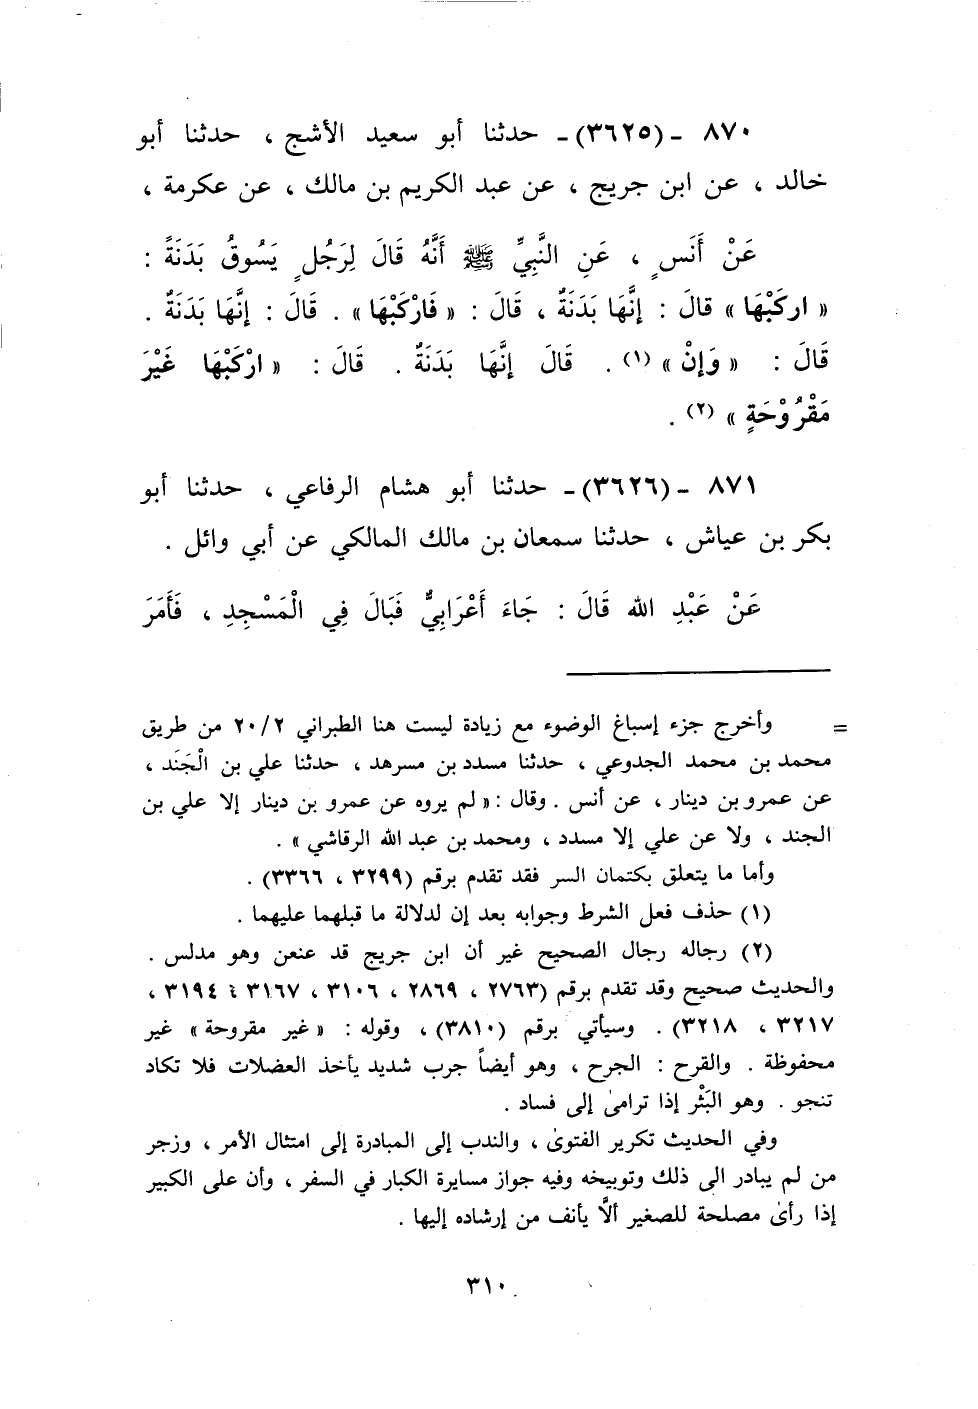 ٨٧٠ - (٣٦٢٥) - حدثنا أبو سعيد الأشج ، حدثنا أبو
خالد ، عن ابن جريج ، عن عبد الكريم بن مالك ، عن عكرمة ،
عَنْ أَنَسٍ ، عَنِ النَّبِيِّ ﷺ أَنَّهُ قَالَ لِرَجُلٍ يَسُوقُ بَدَنَةً :
« اركَبْهَا » قالَ : إنَّهَا بَدَنَةٌ ، قَالَ : « فَارْكَبْهَا » . قَالَ : إنَّهَا بَدَنَةٌ .
قَالَ : « وَإنْ » (١) . قَالَ إنَّهَا بَدَنَةٌ . قَالَ : « ارْكَبْهَا غَيْرَ
مَقْرُوْحَةٍ » (٢) .
٨٧١ - (٣٦٢٦) - حدثنا أبو هشام الرفاعي ، حدثنا أبو
بكر بن عياش ، حدثنا سمعان بن مالك المالكي عن أبي وائل .
عَنْ عَبْدِ الله قَالَ : جَاءَ أَعْرَابِيٌّ فَبَالَ فِي الْمَسْجِدِ ، فَأَمَرَ
= وأخرج جزء إسباغ الوضوء مع زيادة ليست هنا الطبراني ٢٠/٢ من طريق
محمد بن محمد الجدوعي ، حدثنا مسدد بن مسرهد ، حدثنا علي بن الْجَنَد ،
عن عمرو بن دينار ، عن أنس . وقال : « لم يروه عن عمرو بن دينار إلا علي بن
الجند ، ولا عن علي إلا مسدد ، ومحمد بن عبد الله الرقاشي » .
وأما ما يتعلق بكتمان السر فقد تقدم برقم (٣٢٩٩ ، ٣٣٦٦) .
(١) حذف فعل الشرط وجوابه بعد إن لدلالة ما قبلهما عليهما .
(٢) رجاله رجال الصحيح غير أن ابن جريج قد عنعن وهو مدلس .
والحديث صحيح وقد تقدم برقم (٢٧٦٣ ، ٢٨٦٩ ، ٣١٠٦ ، ٣١٦٧ ، ٣١٩٤ ،
٣٢١٧ ، ٣٢١٨) . وسيأتي برقم (٣٨١٠) ، وقوله : « غير مقروحة » غير
محفوظة . والقرح : الجرح ، وهو أيضاً جرب شديد يأخذ العضلات فلا تكاد
تنجو . وهو البَثْر إذا ترامىٰ إلى فساد .
وفي الحديث تكرير الفتوىٰ ، والندب إلى المبادرة إلى امتثال الأمر ، وزجر
من لم يبادر الى ذلك وتوبيخه وفيه جواز مسايرة الكبار في السفر ، وأن على الكبير
إذا رأىٰ مصلحة للصغير ألاَّ يأنف من إرشاده إليها .
٣١٠